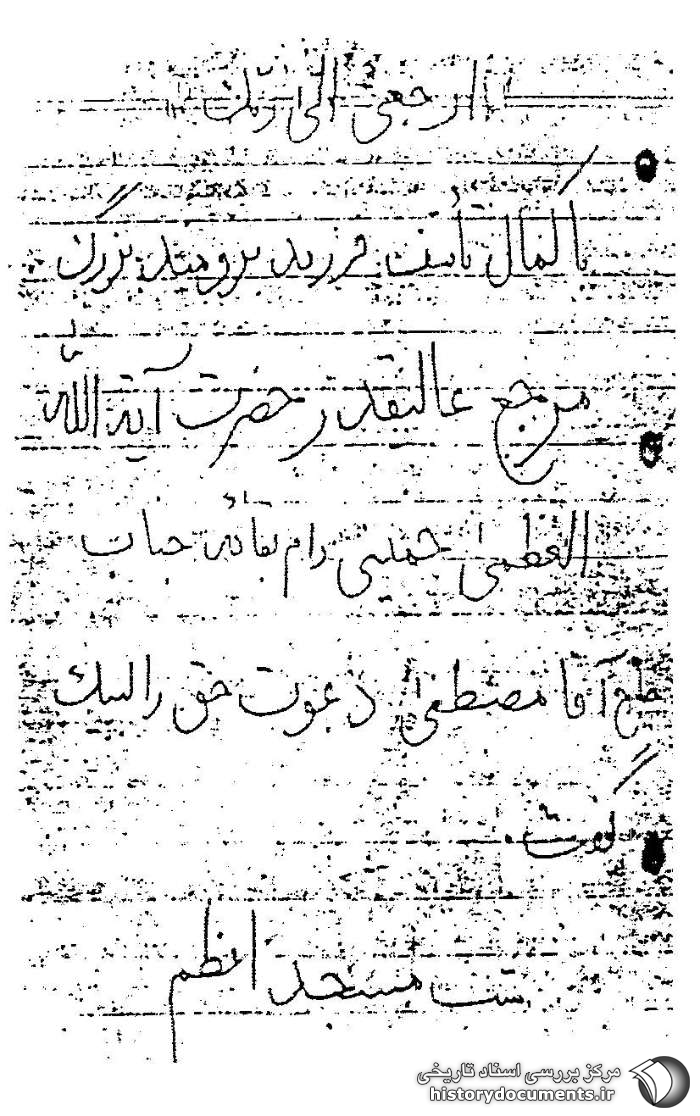 ارجعی الی ربّک
با کمال تأسف فرزند برومند بزرگ
مرجع عالیقدر حضرت آیة اللّه
العظمی خمینی دام بقائه جناب
حاج آقا مصطفی دعوت حق را لبیک
گفت
شب مسجد اعظم
مرکز بررسی اسناد تاریخی
historydocuments.ir